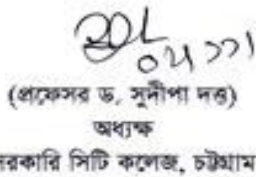 ০৫/১১
(প্রফেসর ড. সুদীপা দত্ত)
অধ্যক্ষ
সরকারি সিটি কলেজ, চট্টগ্রাম